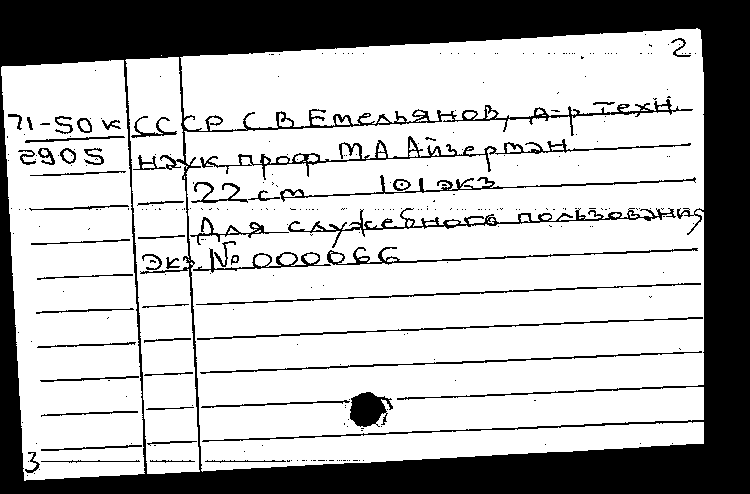 2
71-50к СССР С В Емельянов, д-р техн.
2905 наук, проф. М.А. Айзерман
22 cm 101 экз
Для служебного пользования
экз. № 000066
3